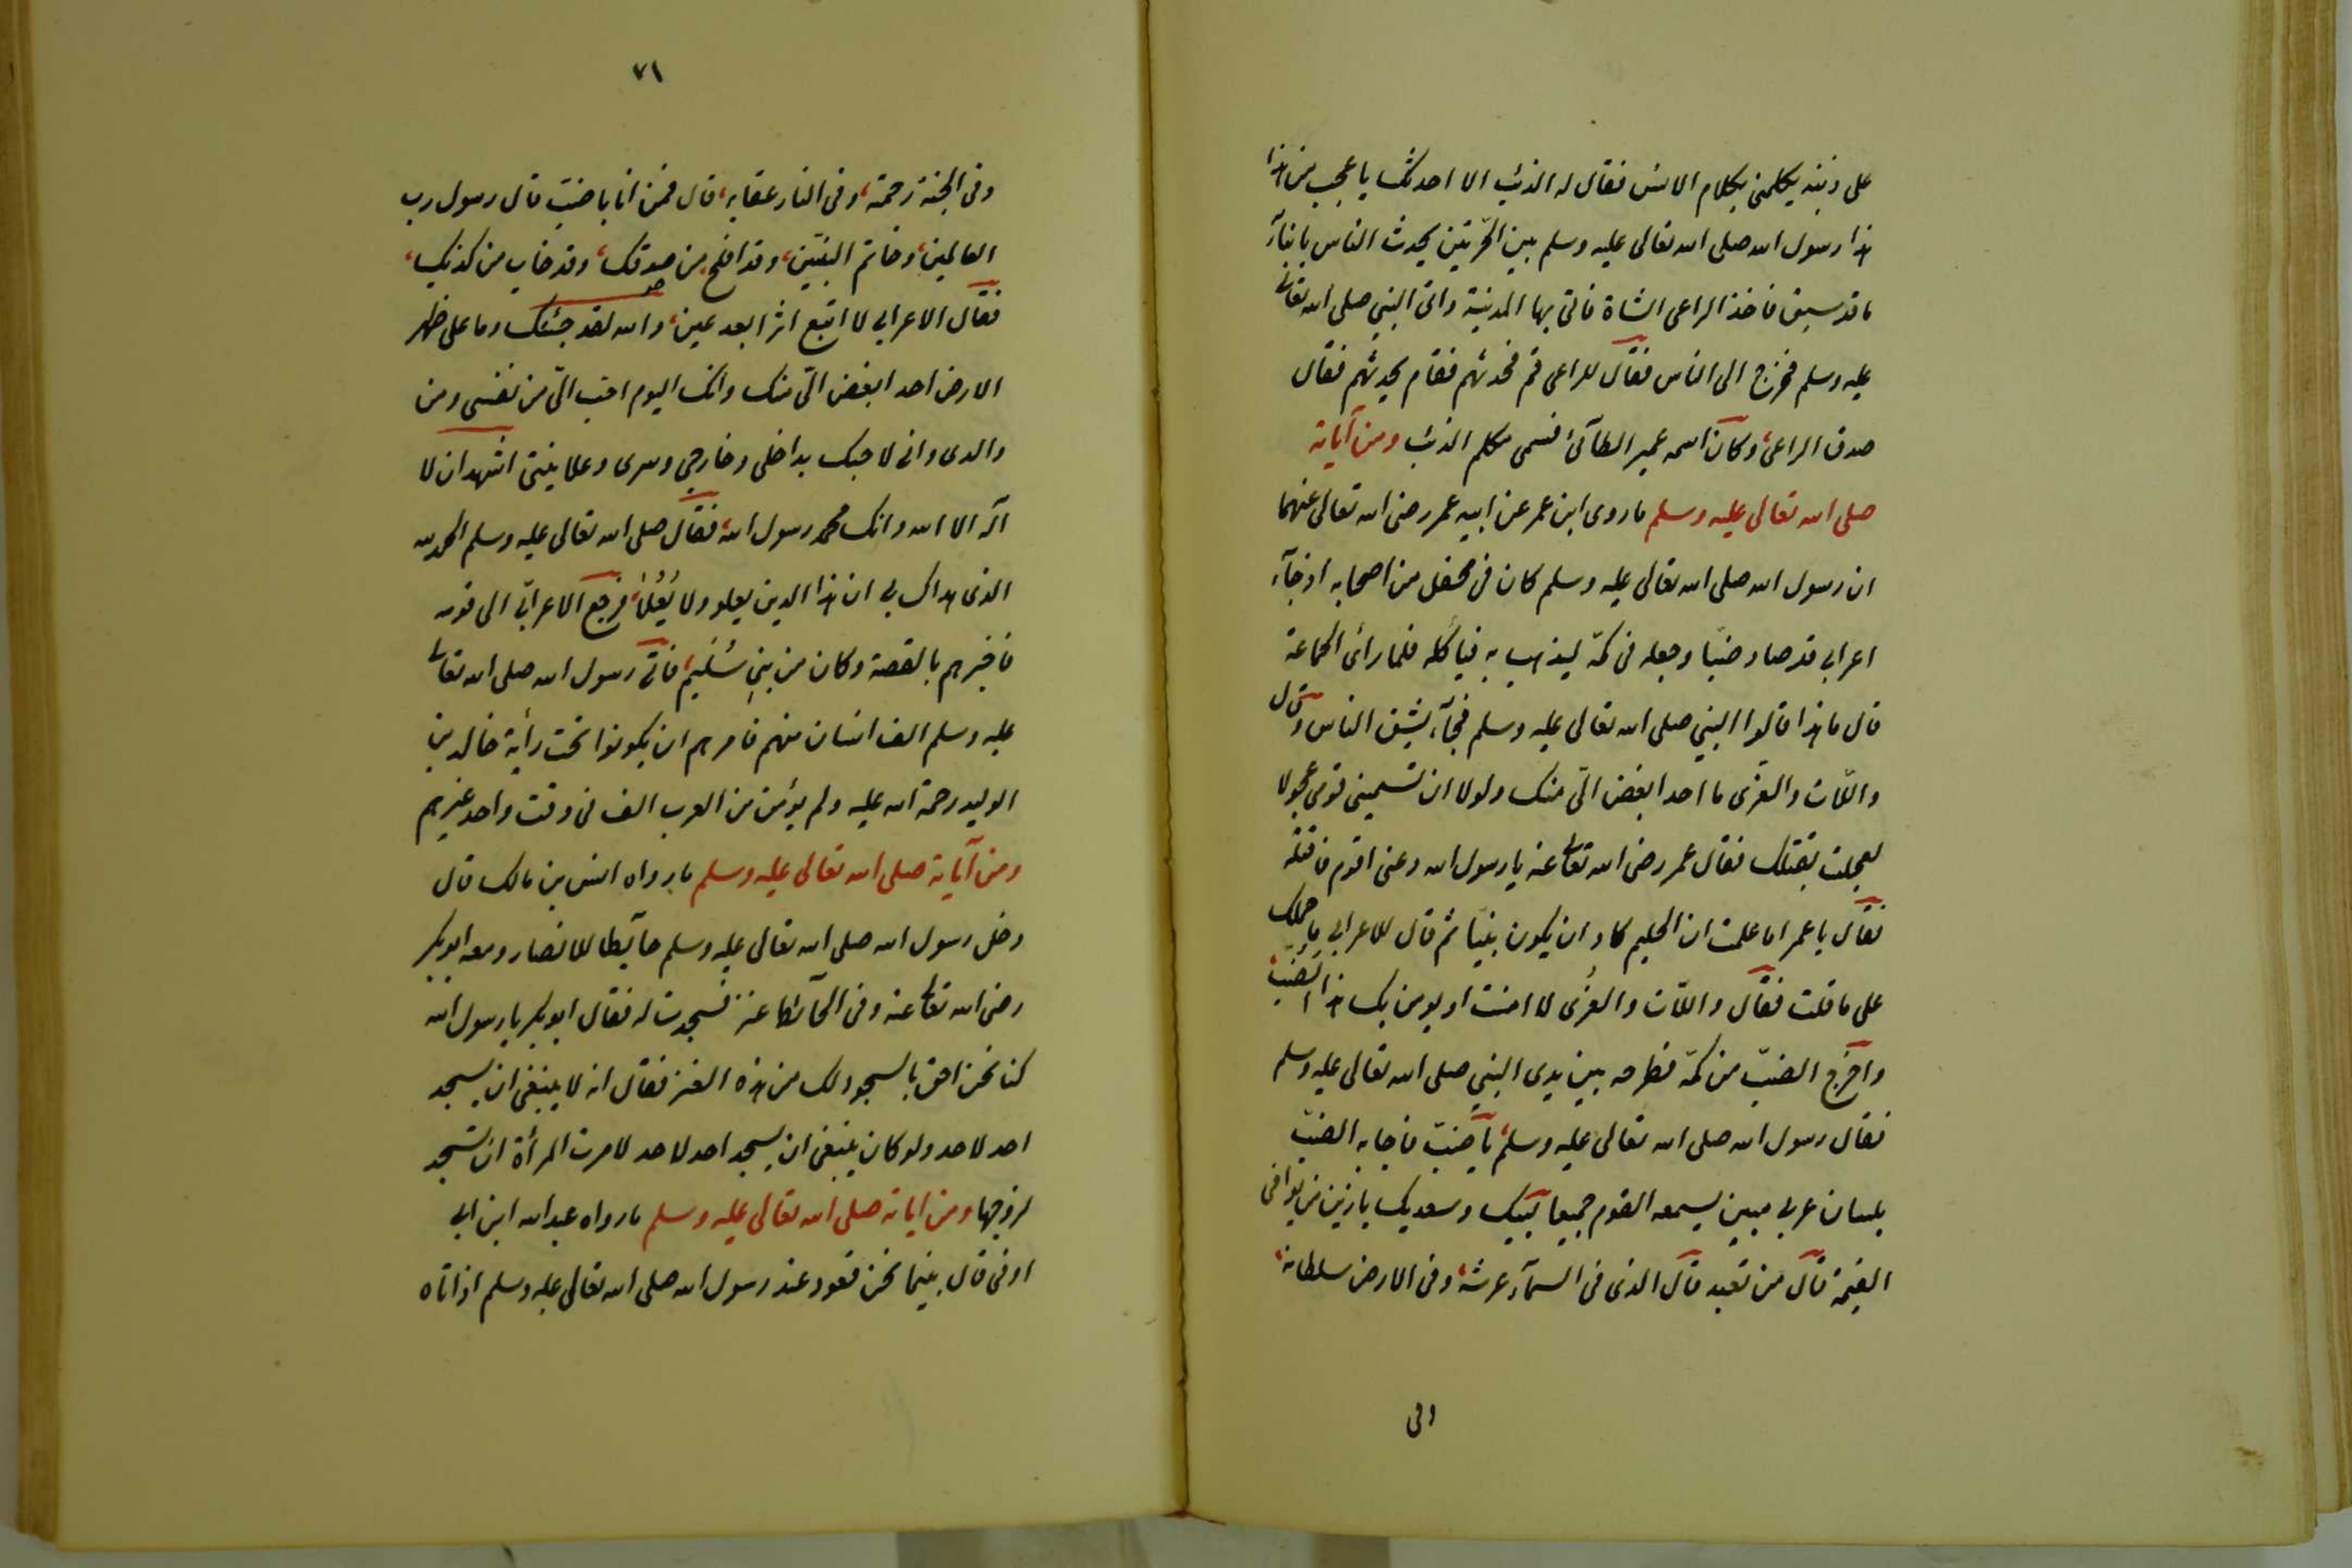 على ذنبه يكلمنى بكلام الانس فقال له الذئب الا احدثك باعجب من هذا
هذا رسول الله صلى الله تعالى عليه وسلم بين الحرّتين يحدث الناس بانبآء
ما قد سبق فاخذ الراعى الشاة فاتى بها المدينة واتى النبي صلى الله تعالى
عليه وسلم فخرج الى الناس فقال للراعى قم فحدثهم فقام يحدثهم فقال
صدق الراعى، وكان اسمه عمير الطآئى فسمى مكلم الذئب ومن آياته
صلى الله تعالى عليه وسلم ما روى ابن عمر عن ابيه عمر رضى الله تعالى عنهما
ان رسول الله صلى الله تعالى عليه وسلم كان فى محفل من اصحابه اذ جآء
اعرابي قد صاد ضبّا وجعله فى كمّه ليذهب به فيأكله فلما رأى الجماعة
قال ما هذا قالوا النبي صلى الله تعالى عليه وسلم فجآء يشق الناس وقال
واللّات والعزى ما احد ابغض الىّ منك ولولا ان تسمينى قومى عجولا
لعجلت بقتلك فقال عمر رضى الله تعالى عنه يا رسول الله دعنى اقوم فاقتله
فقال يا عمر اما علمت ان الحليم كاد ان يكون نبيّا ثم قال للاعرابي ما حملك
على ما قلت فقال واللّات والعزى لا امنت او يومن بك هذا الضب،
واخرج الضبّ من كمّه فطرحه بين يدى النبي صلى الله تعالى عليه وسلم
فقال رسول الله صلى الله تعالى عليه وسلم، يا ضبّ فاجابه الضبّ
بلسان عربي مبين يسمعه القوم جميعا لبيك وسعديك يا زين من يوافى
القيمة قال من تعبد قال الذى فى السمآء عرشه، وفى الارض سلطانه،
وفى
٧١
وفى الجنة رحمته، وفى النار عقابه، قال فمن انا يا ضبّ قال رسول رب
العالمين، وخاتم النبيّين، وقد افلح من صدقك، وقد خاب من كذبك،
فقال الاعرابي لا اتبع اثرا بعد عين، والله لقد جئتك وما على ظهر
الارض احد ابغض الىّ منك وانك اليوم احب الىّ من نفسى ومن
والدى وانى لاحبك بداخلى وخارجي وسرى وعلانيتى اشهد ان لا
آله الا الله وانك محمد رسول الله، فقال صلى الله تعالى عليه وسلم الحمد لله
الذى هداك بي ان هذا الدين يعلو ولا يُعْلٰى، فرجع الاعرابي الى قومه
فاخبرهم بالقصة وكان من بنى سُلَيم، فاتى رسول الله صلى الله تعالى
عليه وسلم الف انسان منهم فامرهم ان يكونوا تحت رأية خالد بن
الوليد رحمة الله عليه ولم يؤمن من العرب الف فى وقت واحد غيرهم
ومن آياته صلى الله تعالى عليه وسلم ما رواه انس بن مالك قال
دخل رسول الله صلى الله تعالى عليه وسلم حآئطا للانصار ومعه ابوبكر
رضى الله تعالى عنه وفى الحآئط عنز فسجدت له فقال ابوبكر يا رسول الله
كنا نحن احق بالسجود لك من هذه العنز فقال انه لا ينبغى ان يسجد
احد لاحد ولو كان ينبغى ان يسجد احد لاحد لامرت المرأة ان تسجد
لزوجها ومن اياته صلى الله تعالى عليه وسلم ما رواه عبد الله ابن ابي
اوفى قال بينما نحن قعود عند رسول الله صلى الله تعالى عليه وسلم اذ اتاه